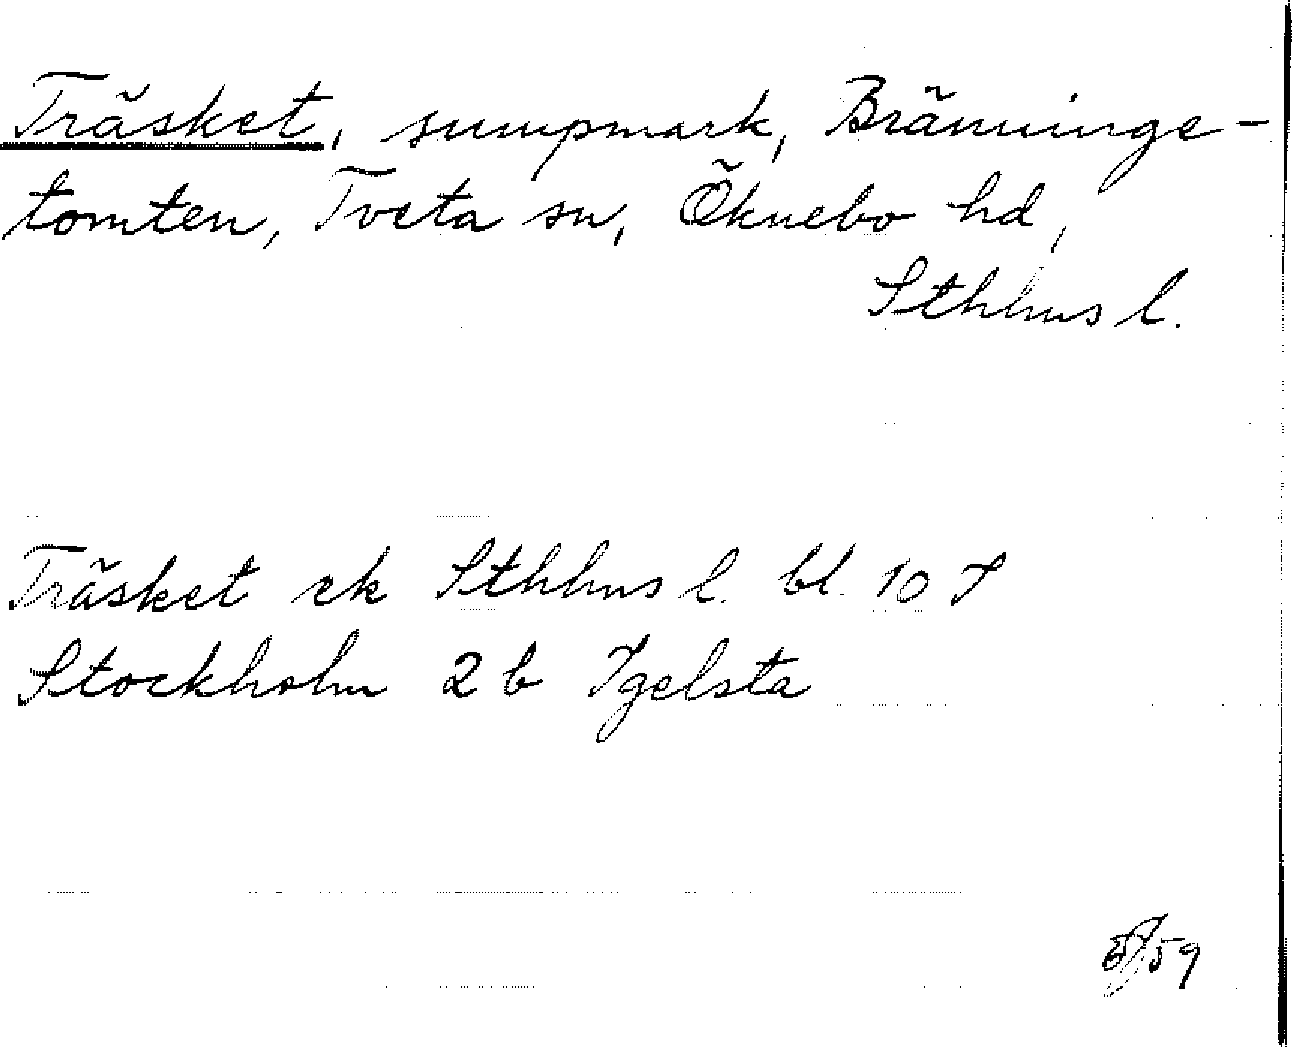 Träsket, sumpmark, Bränninge-
tomten, Tveta sn, Öknebo hd,
Sthlms l.
Träsket ek Sthlms l. bl. 10 J
Stockholm 2 b Igelsta
59